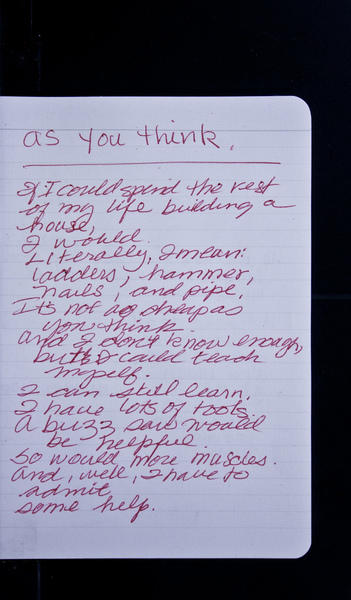 as you think.
If I could spend the rest
of my life building a
house,
I would.
Literally, I mean:
ladders, hammer,
nails, and pipe.
It's not as cheap as
you think.
and I don't know enough,
but I could teach
myself.
I can still learn.
I have lots of tools.
A buzz saw would
be helpful.
So would more muscles.
And, well, I have to
admit,
some help.